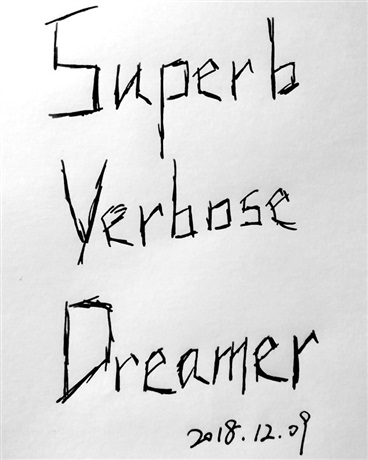 Superb
Verbose
Dreamer
2018.12.09